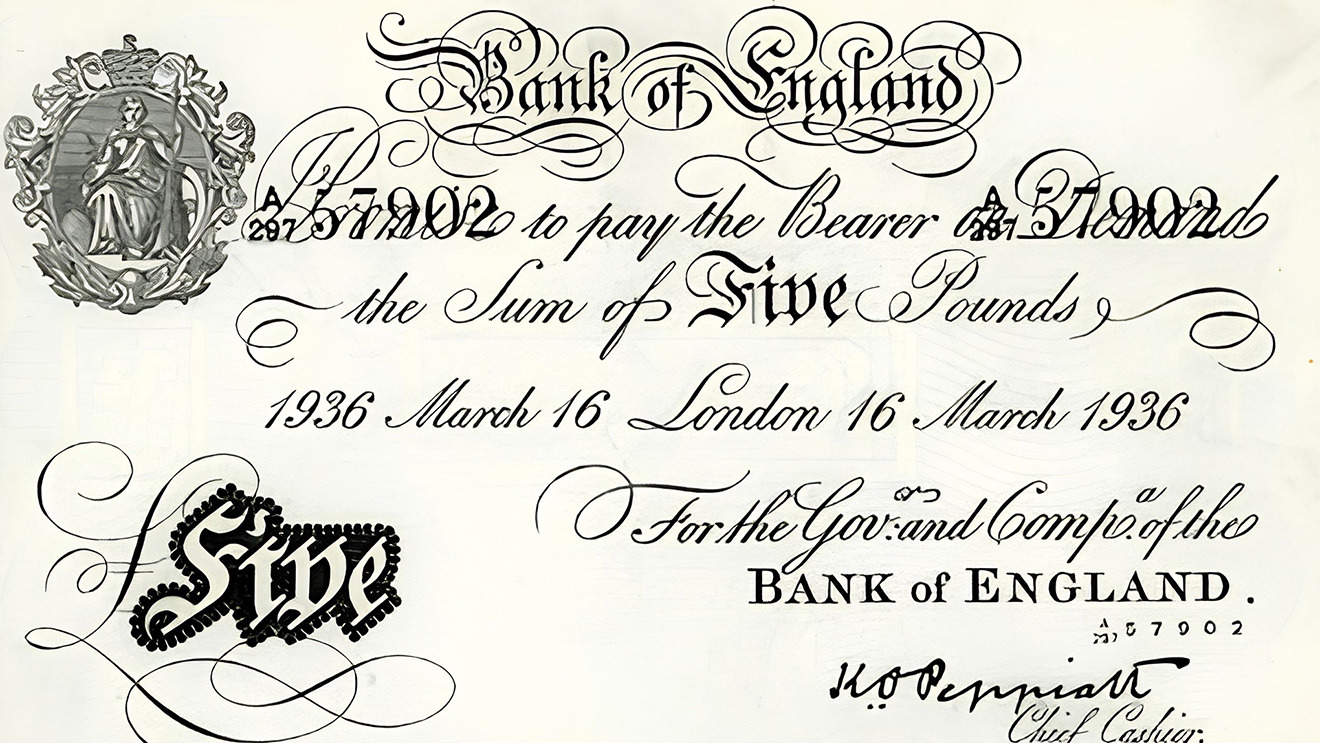 Bank of England
A 297 57902 Promise to pay the Bearer on Demand A 297 57902
the Sum of Five Pounds
1936 March 16 London 16 March 1936
For the Gov:ors and Comp.a of the
BANK of ENGLAND.
57902
£ Five
K.O. Peppiatt
Chief Cashier.